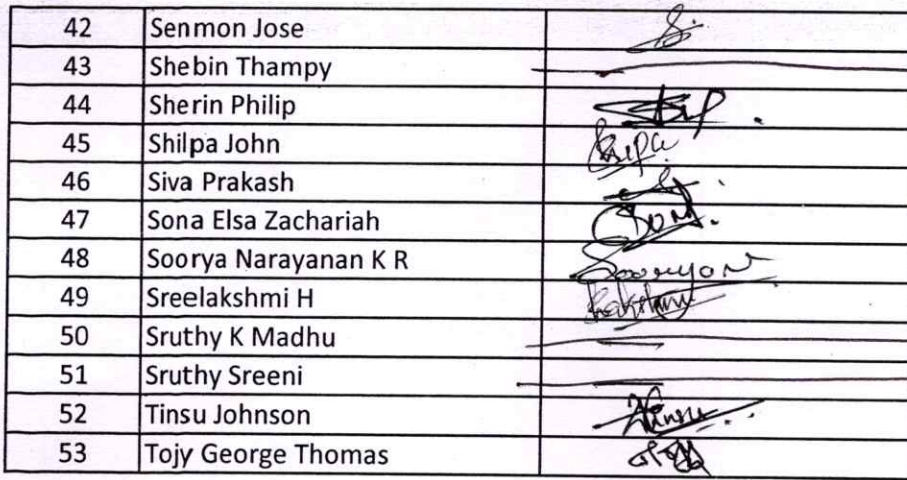 42 Senmon Jose
43 Shebin Thampy
44 Sherin Philip
45 Shilpa John
46 Siva Prakash
47 Sona Elsa Zachariah
48 Soorya Narayanan K R
49 Sreelakshmi H
50 Sruthy K Madhu
51 Sruthy Sreeni
52 Tinsu Johnson
53 Tojy George Thomas